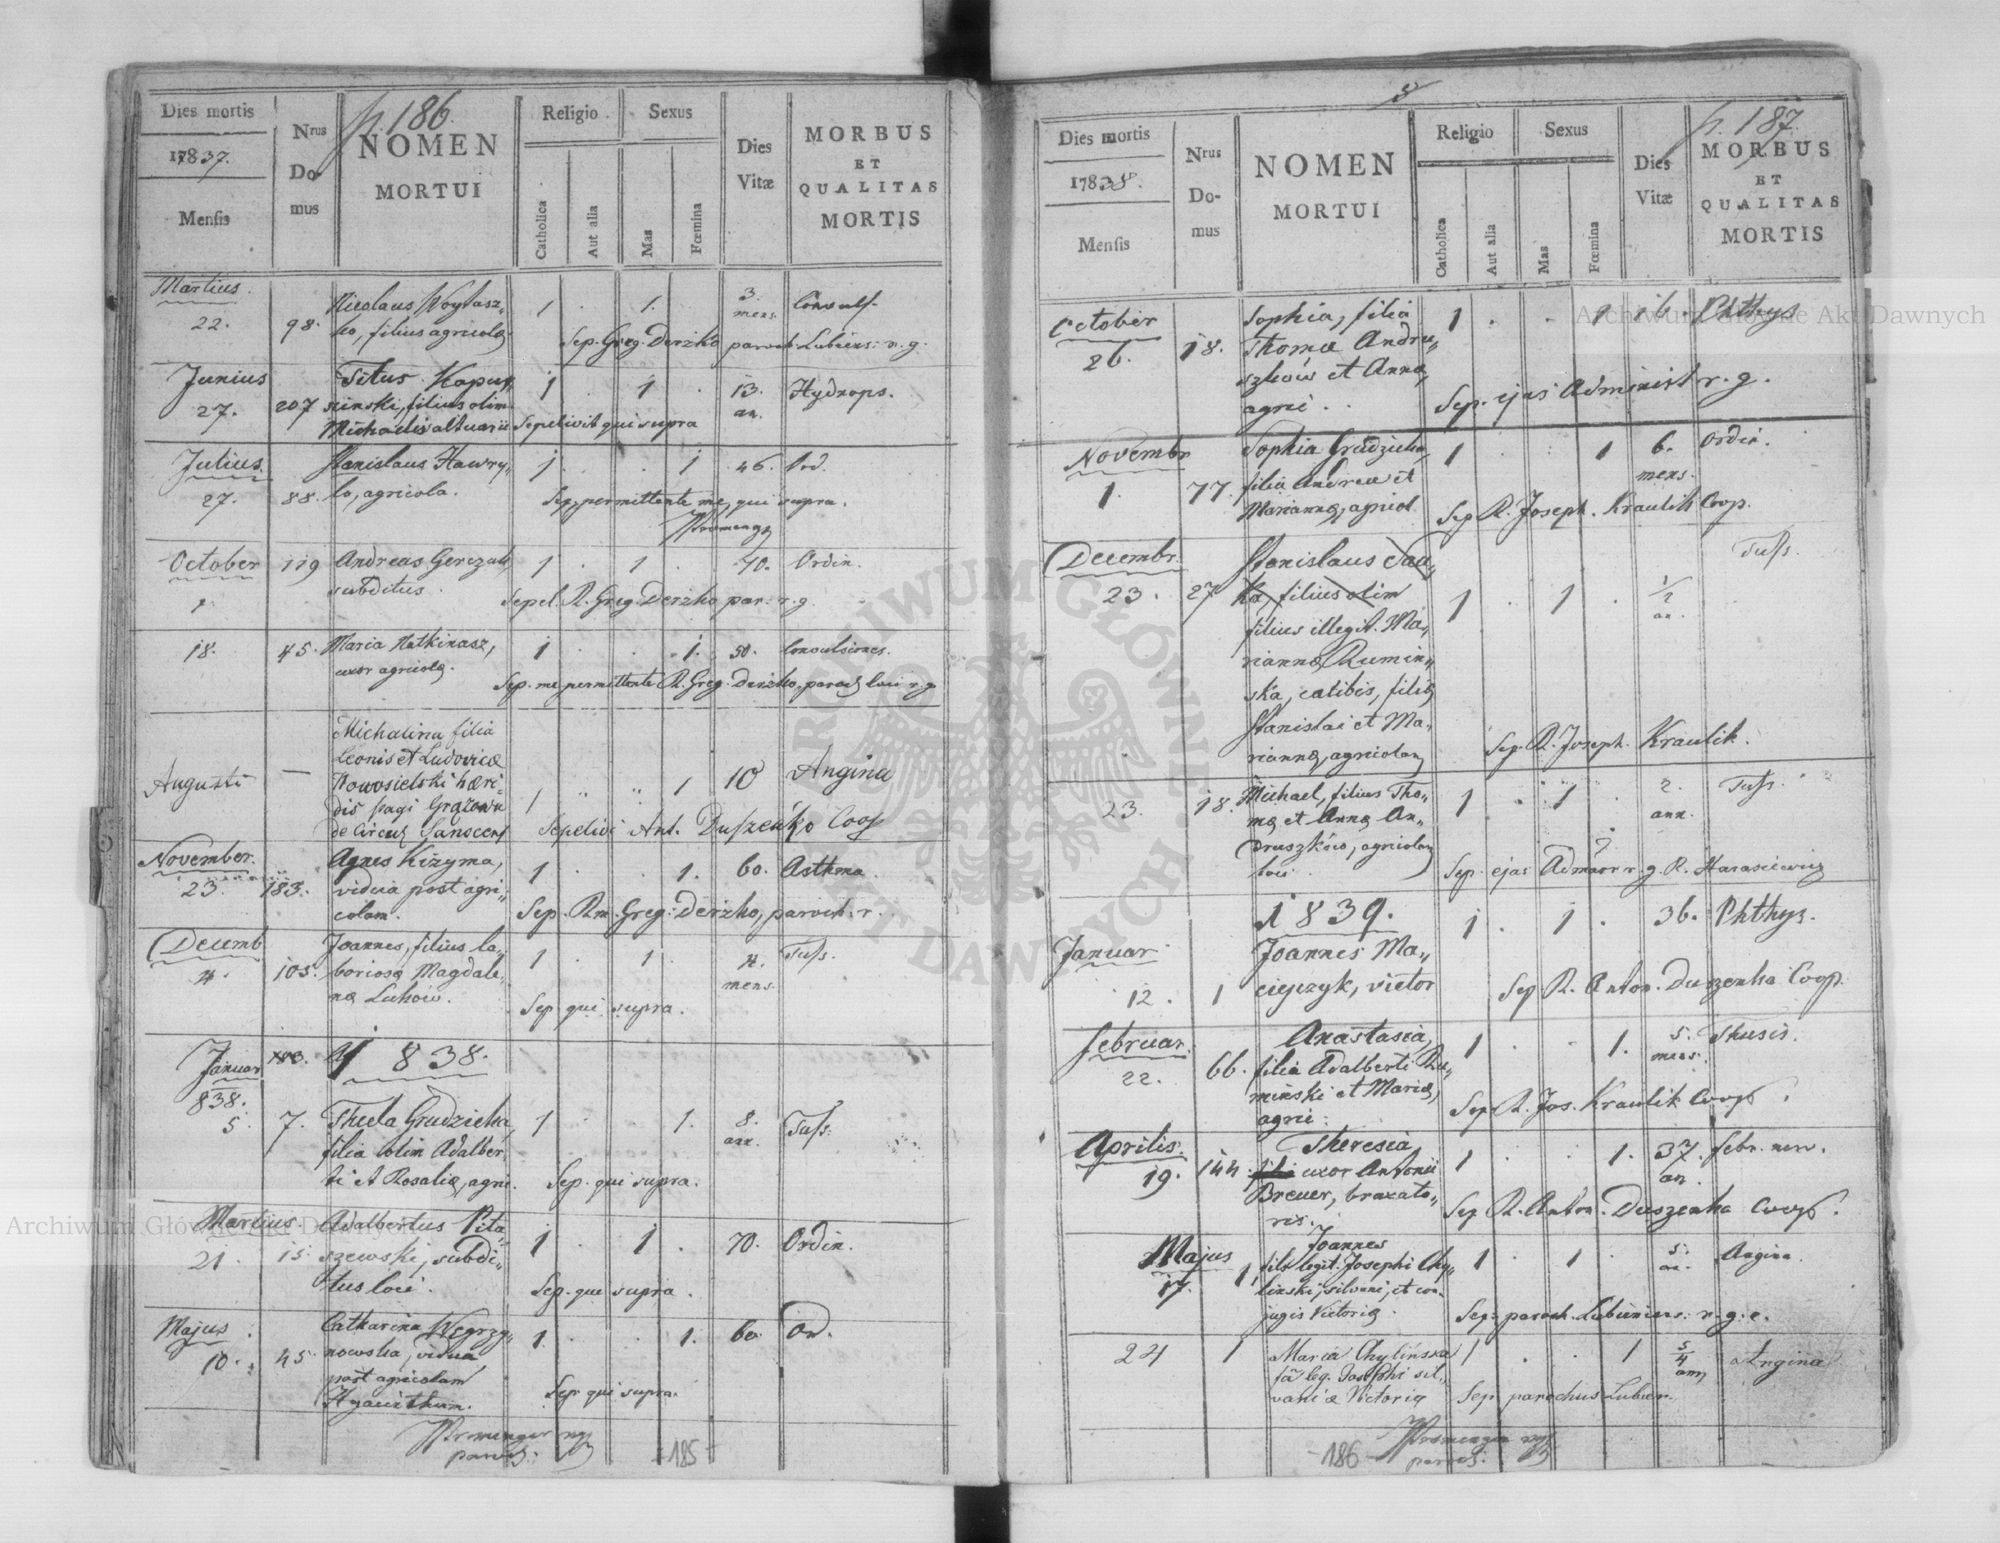 p. 186.
Dies mortis
1837.
Mensis
Nrus
Do
mus
NOMEN
MORTUI
Religio
Sexus
Catholica
Aut alia
Mas
Fœmina
Dies
Vitæ
MORBUS
ET
QUALITAS
MORTIS
Martius.
22. 98. Nicolaus Woytasz-
ko, filius agricolæ. 1 . 1. 3. mens. Convuls.
Sep. Greg. Derzko paroch. Lubiens. r. g.
Junius
27. 207 Titus Kopus,,
cinski, filius olim 1 . 1 . 13. an. Hydrops.
Michaelis actuarii Sepelivit qui supra
Julius.
27. 88. Stanislaus Hawry,,
lo, agricola. 1 . . 1 46. Ord.
Sep. permittente me, qui supra.
October 119 Andreas Gerczak,
subditus. 1 . 1 . 70. Ordin.
Sepel. R. Greg. Derzko par. r. g.
18. 45. Maria Hatkinasz,
uxor agricolæ. 1 . . 1. 50. Convulsiones.
Sep. me permittente R. Greg. Derzko, paroch loci r. g.
Augusti — Michalina filia
Leonis et Ludovicæ
Nowosielski hæri-
dis pagi Grązowa
de Circul Sanocens 1 ,, ,, 1 10 Angina
Sepelivi Ant. Duszeńko Coop
November.
23 183. Agnes Kizyma,
vidua post agri-
colam. 1 . . 1. 60. Asthma.
Sep. Rm. Greg. Derzko, paroch. r.
Decemb
4. 105. Joannes, filius la,,
boriosæ Magdale-
næ Lukow. 1 . 1 . 4. mens. Tuss.
Sep. qui supra.
1838.
Januar
838.
5 7. Thecla Grudzicka,
filia olim Adalber-
ti et Rosaliæ, agri. 1 . . 1. 8. ann. Tuss.
Sep. qui supra.
Martius.
21. 15. Adalbertus Pita,,
szewski, subdi,,
tus loci. 1 . 1 . 70. Ordin.
Sep. qui supra.
Majus.
10. 45. Catharina Węgrzy,,
nowska, vidua
post agricolam
Hyacinthum. 1 . . 1. 60. Ord.
Sep. qui supra.
paroch.
-185-
p. 187.
Dies mortis
1838.
Mensis
Nrus
Do-
mus
NOMEN
MORTUI
Religio
Sexus
Catholica
Aut alia
Mas
Fœmina
Dies
Vitæ
MORBUS
ET
QUALITAS
MORTIS
October
26. 18. Sophia, filia
Thomæ Andru,,
szków et Annæ,
agric. 1 . . 1 16. Phthys
Sep. ejus Administ. r. g.
Novembr
1. 77. Sophia Grudzicka,
filia Andreæ et
Mariannæ, agricol 1 . . 1 6. mens. Ordin.
Sep R. Joseph. Kraulik Coop.
Decembr.
23. 27 Stanislaus
ka, filius olim
filius illegit. Ma,,
riannæ Rumin,,
ska, cælibis, filiæ
Stanislai et Ma-
riannæ, agricolam 1 . 1 . ½ an. Tuss.
Sep. R. Joseph. Kraulik.
23. 18. Michael, filius Tho-
mæ et Annæ An-
druszków, agricolam
loci. 1 . 1 . 2. ann. Tuss.
Sep. ejus Admstr r. g. R. Harasiewicz
1839.
Januar
12. 1 Joannes Ma-
ciejczyk, victor 1 . 1 . 36. Phthys.
Sep R. Anton. Duszenka Coop.
Februar.
22. 66. Anastasia,
filia Adalberti Ru-
minski et Mariæ,
agric. 1 . . 1. 5. mens. Thusis.
Sep R. Jos. Kraulik Coop.
Aprilis.
19. 144. Theresia,
uxor Antonii
Breuer, braxato-
ris. 1 . . 1. 37. an. febr. nerv.
Sep R. Anton. Duszenka Coop.
Majus
17. 1. Joannes
fils legit. Josephi Chy,,
linski, silvani, et con,,
jugis Victoriæ. 1 . 1 . 5. an. Angina.
Sep. paroch. Lubiniens. r. g. c.
24 1 Maria Chylińska
fa leg. Josephi sil-
vani & Victoriæ 1 . . 1 5/4 ann Angina
Sep. parochus Lubien.
paroch.
-186-
Archiwum Główne Akt Dawnych
Archiwum Główne Akt Dawnych
ARCHIWUM GŁÓWNE
AKT DAWNYCH